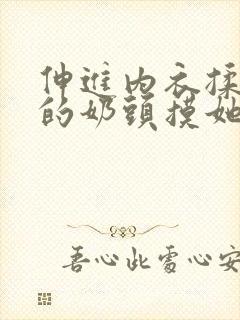 伸進内衣揉
的奶頭摸她
吾心此處心安